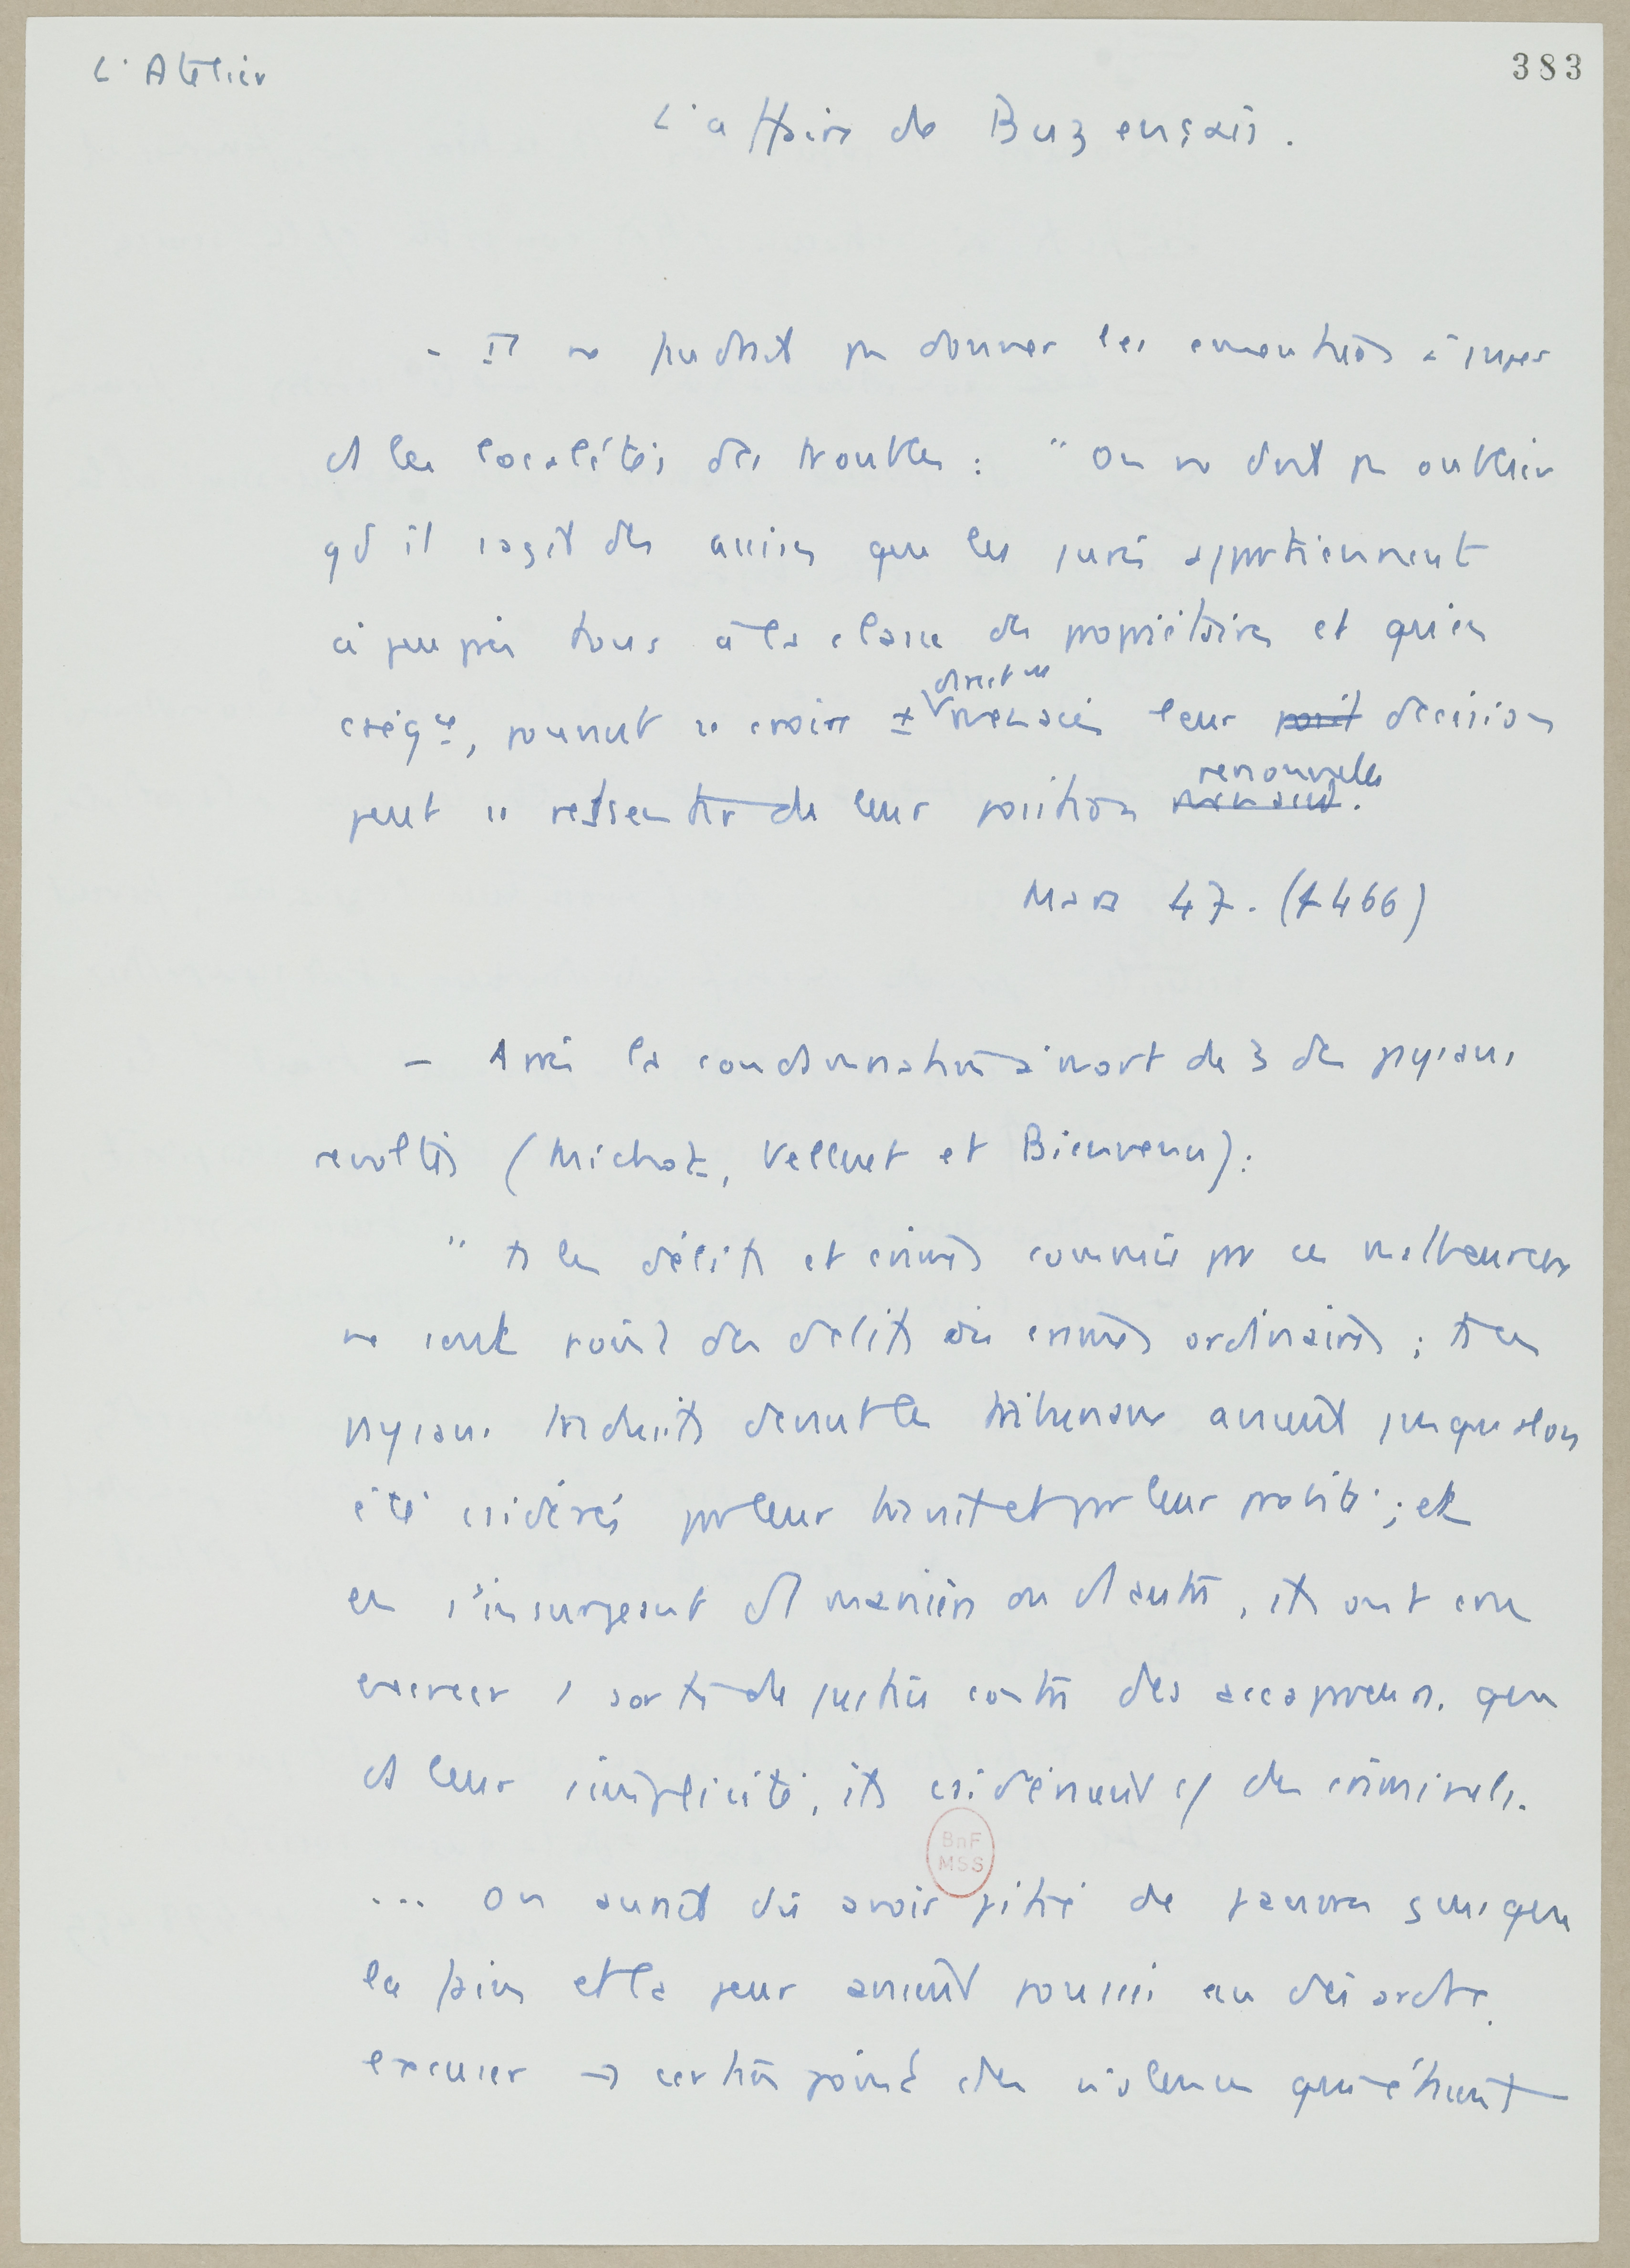 L'Atelier
383
L'affaire de Buzençais.
- Il ne faudrait pas donner les émeutiers à juger
ds les localités des troubles : "On ne doit pas oublier
qd il s'agit des assises que les jurés appartiennent
à peu près tous à la classe des propriétaires et qu'en
cséqce, pouvant se croire ± directt menacés leur décision
peut se ressentir de leur position personnelle.
Mars 47. (1466)
- Après la condamnation à mort de 3 des paysans
révoltés (Michot, Velluet et Bienvenu) :
" ts les délits et crimes commis par ces malheureux
ne sont point des délits ou crimes ordinaires ; ts ces
paysans traduits devant les tribunaux avaient jusque alors
été csidérés pr leur travail et pr leur probité ; et
en s'insurgeant d'1 manière ou d'1 autre, ils ont cru
exercer 1 sorte de justice contre des accapareurs, que
ds leur simplicité, ils csidéraient c/ des criminels.
... On aurait dû avoir pitié de pauvres gens que
la faim et la peur avaient poussés au désordre,
excuser → certain point des violences qui étaient
BnF
MSS